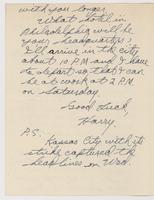 with you longer.
What hotel in
Philadelphia will be
your headquarters?
I'll arrive in the city
about 10 P.M. and I have
to depart so that I can
be at work at 2 P.M.
on Saturday.
Good luck,
Harry.
P.S.
Kansas City with its
strike captured the
headlines on Wed.